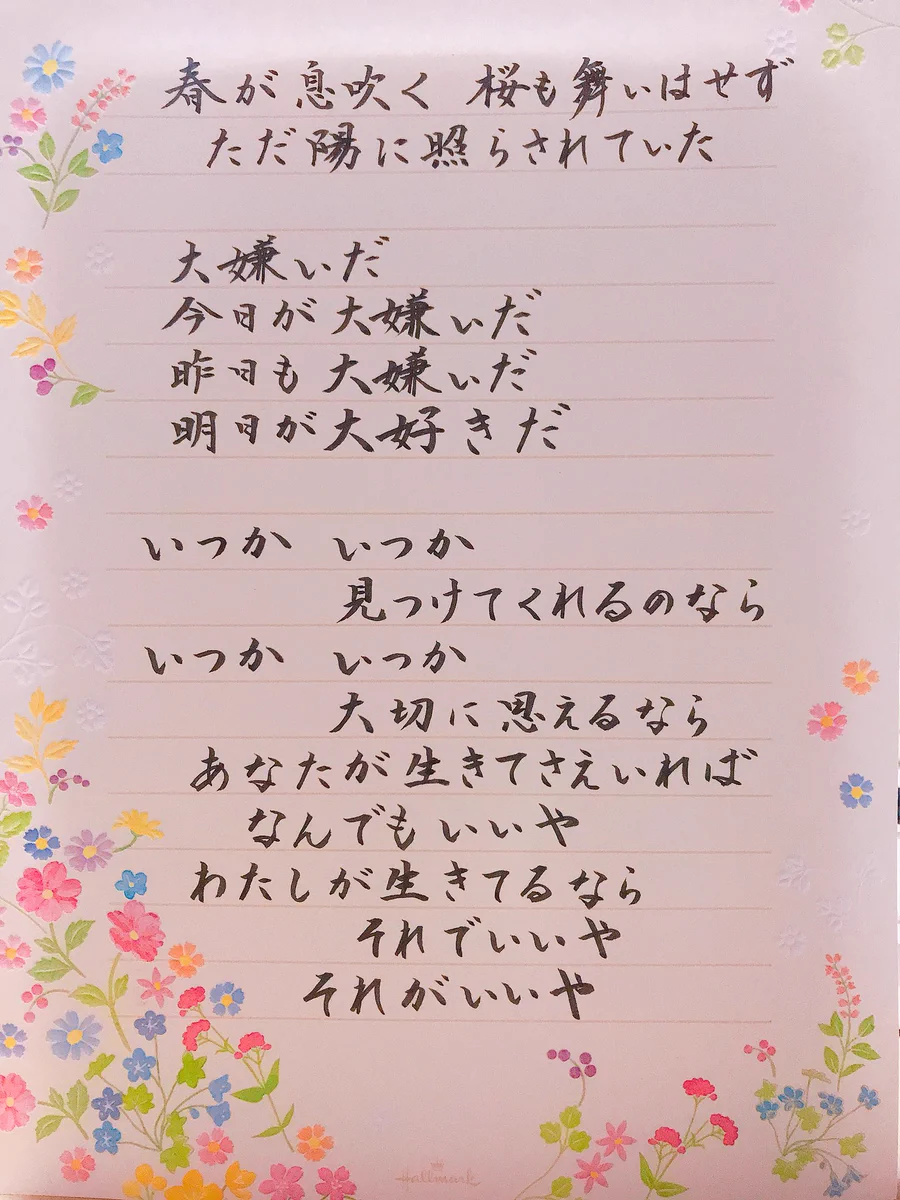 春が息吹く 桜も舞いはせず
ただ陽に照らされていた
大嫌いだ
今日が大嫌いだ
昨日も大嫌いだ
明日が大好きだ
いつか いつか
見つけてくれるのなら
いつか いつか
大切に思えるなら
あなたが生きてさえいれば
なんでもいいや
わたしが生きてるなら
それでいいや
それがいいや
Hallmark